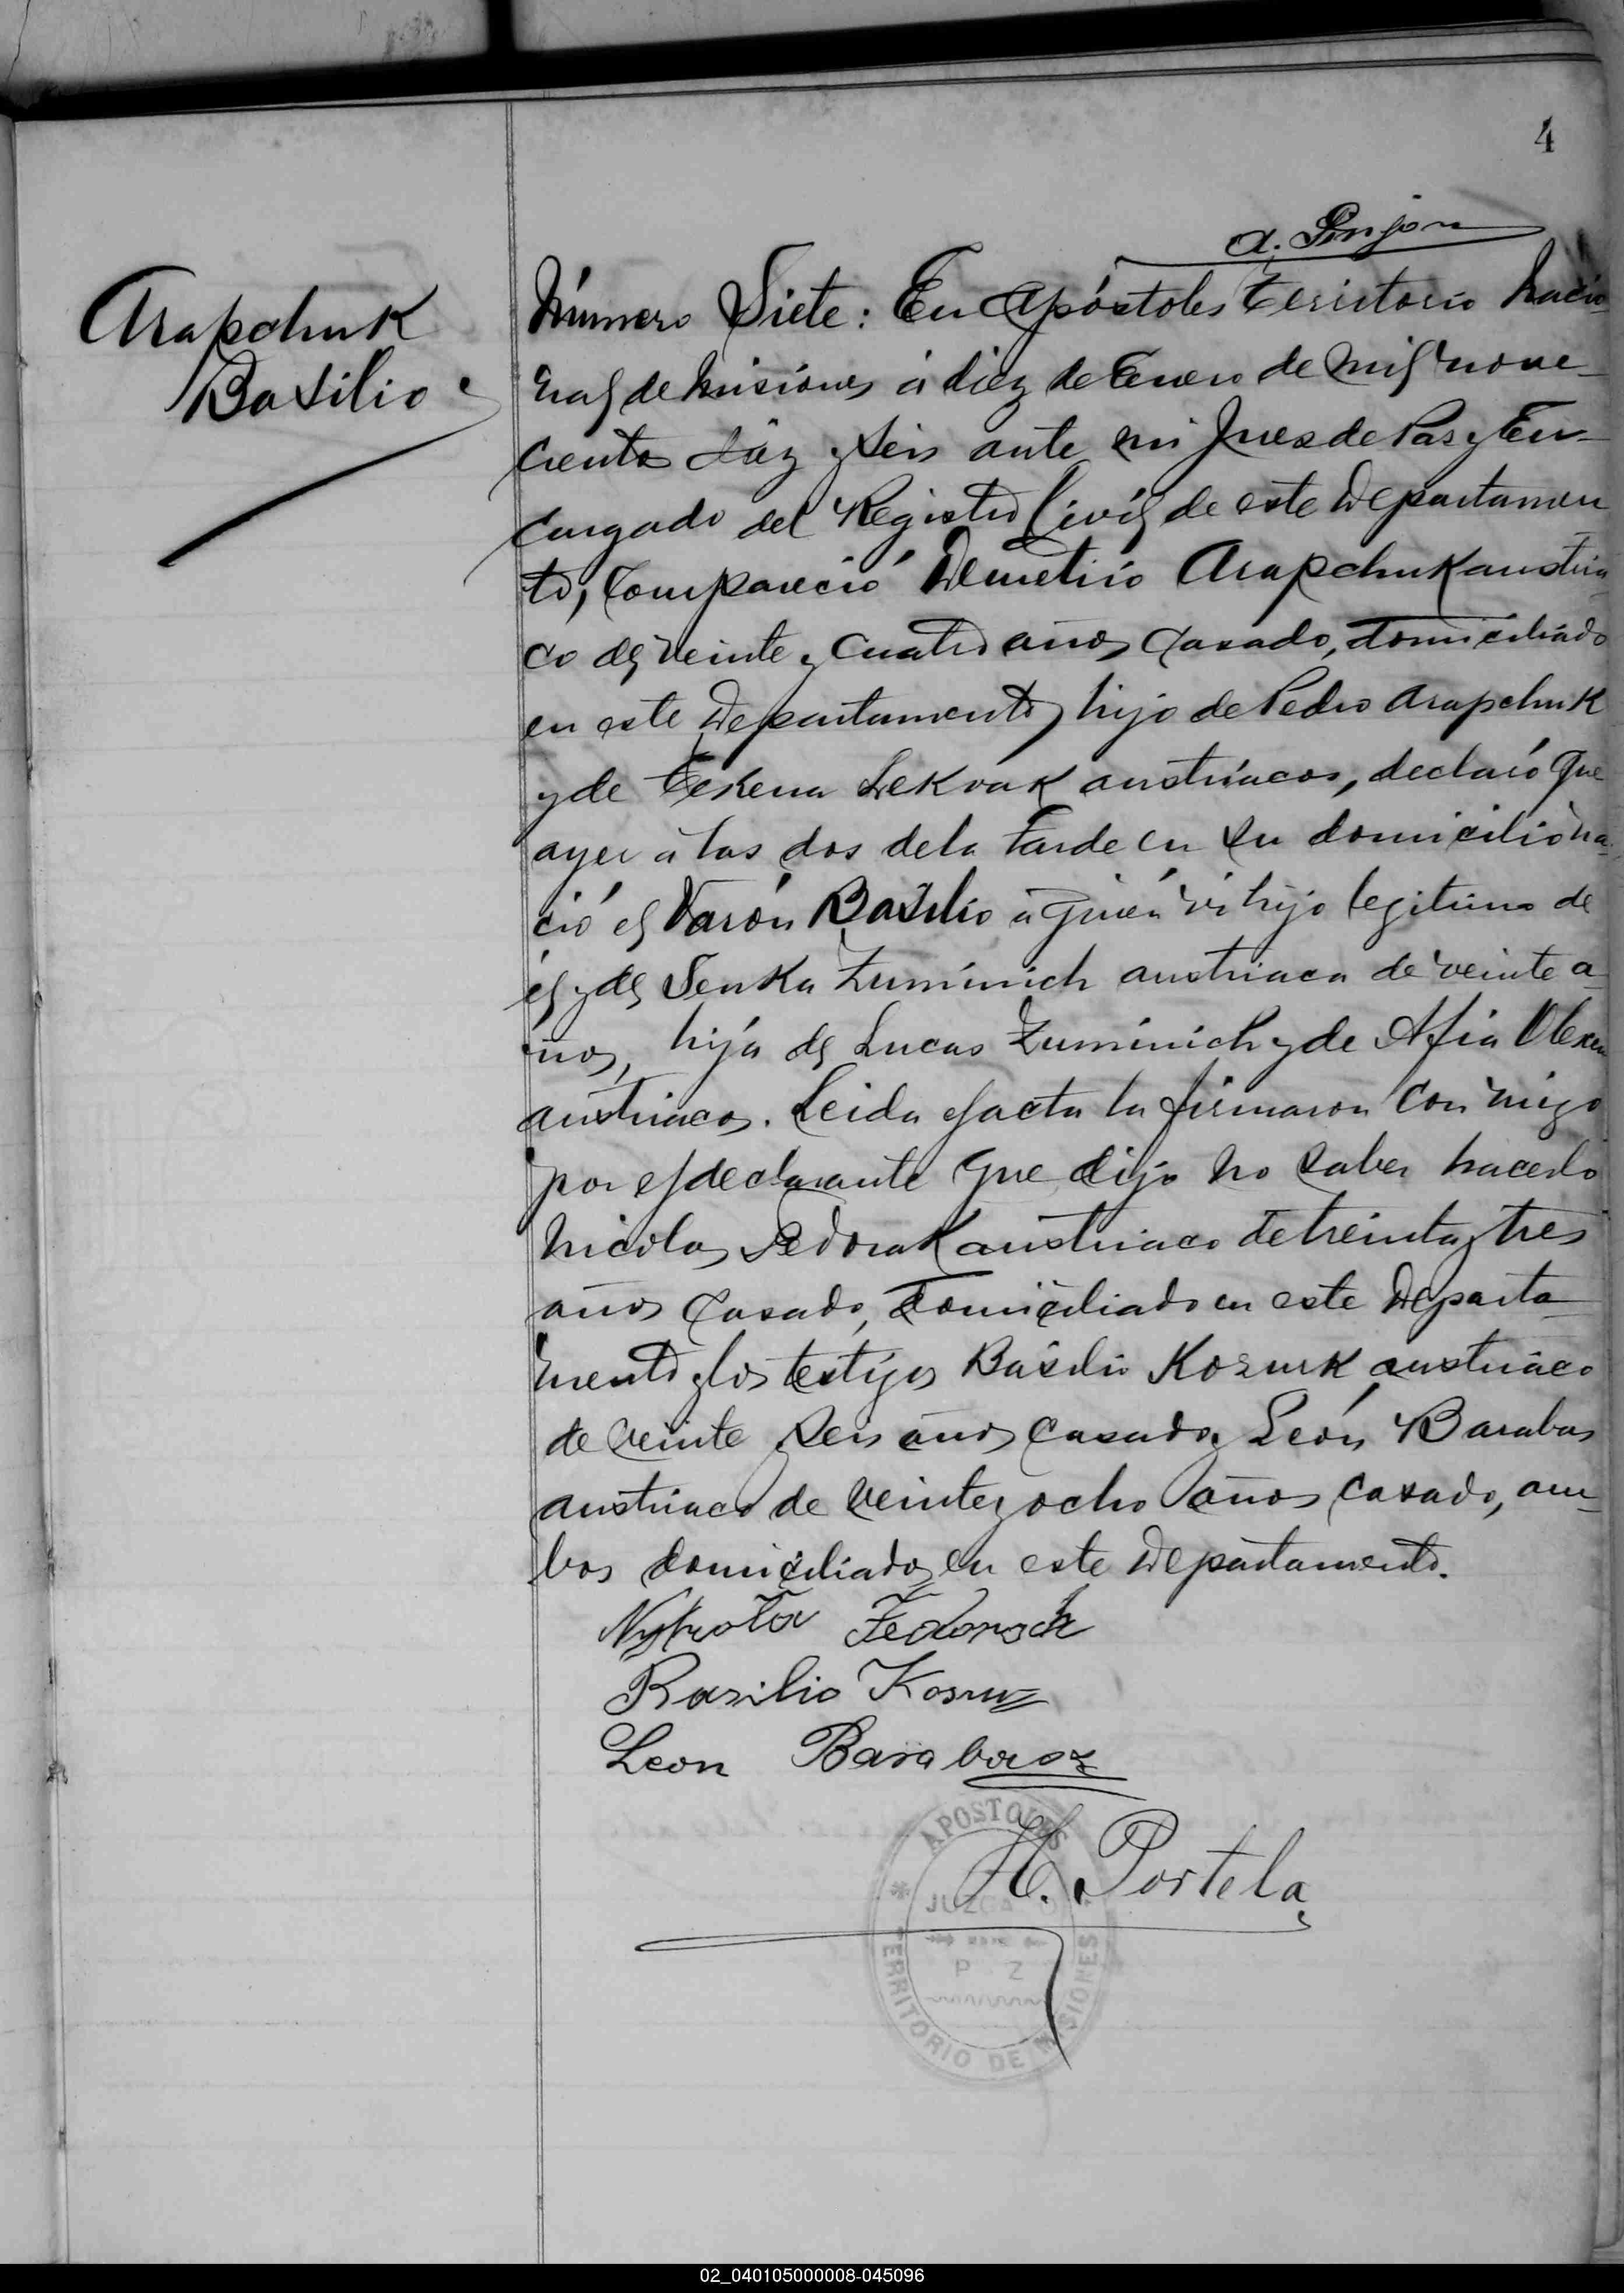 4
Arapchuk
Basilio
Número Siete: En Apóstoles Territorio Nacio
nal de Misiones á diez de Enero de mil nove-
cientos diez y seis ante mi Juez de Paz y En-
cargado del Registro Civil de este Departamen
to, Compareció Demetrio Arapchuk austria
co de veinte y cuatro años casado, domiciliado
en este Departamento, hijo de Pedro Arapchuk
y de austriacos, declaró que
ayer á las dos de la tarde en su domicilio na
ció el Varón Basilio á quién ví hijo legitimo de
él y de Senka Zuminich austriaca de veinte a-
ños, hija de Lucas Zuminich y de Afia
austriacos. Leida el acta la firmaron Conmigo
por el declarante que dijo no saber hacerlo
Nicolas austriaco de treinta y tres
años casado, domiciliado en este Departa-
mento y los testigos Basilio Kozuk austriaco
de veinte y seis años casado y León Barabas
austriaco de veinte y ocho años casado, am-
bos domiciliados en este Departamento.
Fedorack
Basilio
Leon Barabasz
H. Portela
APOSTOLES
JUZGADO
P Z
TERRITORIO DE MISIONES
02_040105000008-045096